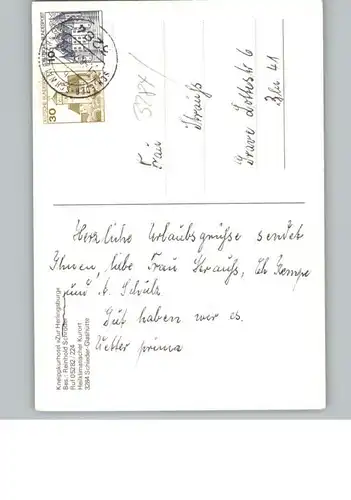 Herzliche Urlaubsgrüße sendet
Ihnen, liebe Frau Strauß,
und A. Schulz
Gut haben wir es.
Wetter prima
Frau
Strauß
Grave Lottestr 6
Bln 41
3284
Kneippkurhotel »Zur Herlingsburg«
Bes.: Reinhold Schröder
Ruf 05282 / 224
Heilklimatischer Kurort
3284 Schieder-Glashütte
30
10